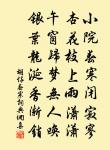 小院春寒閉寂寥
杏花枝上雨瀟瀟
午窗歸夢無人喚
銀葉龍涎香漸銷
胡仔春寒詞典網集